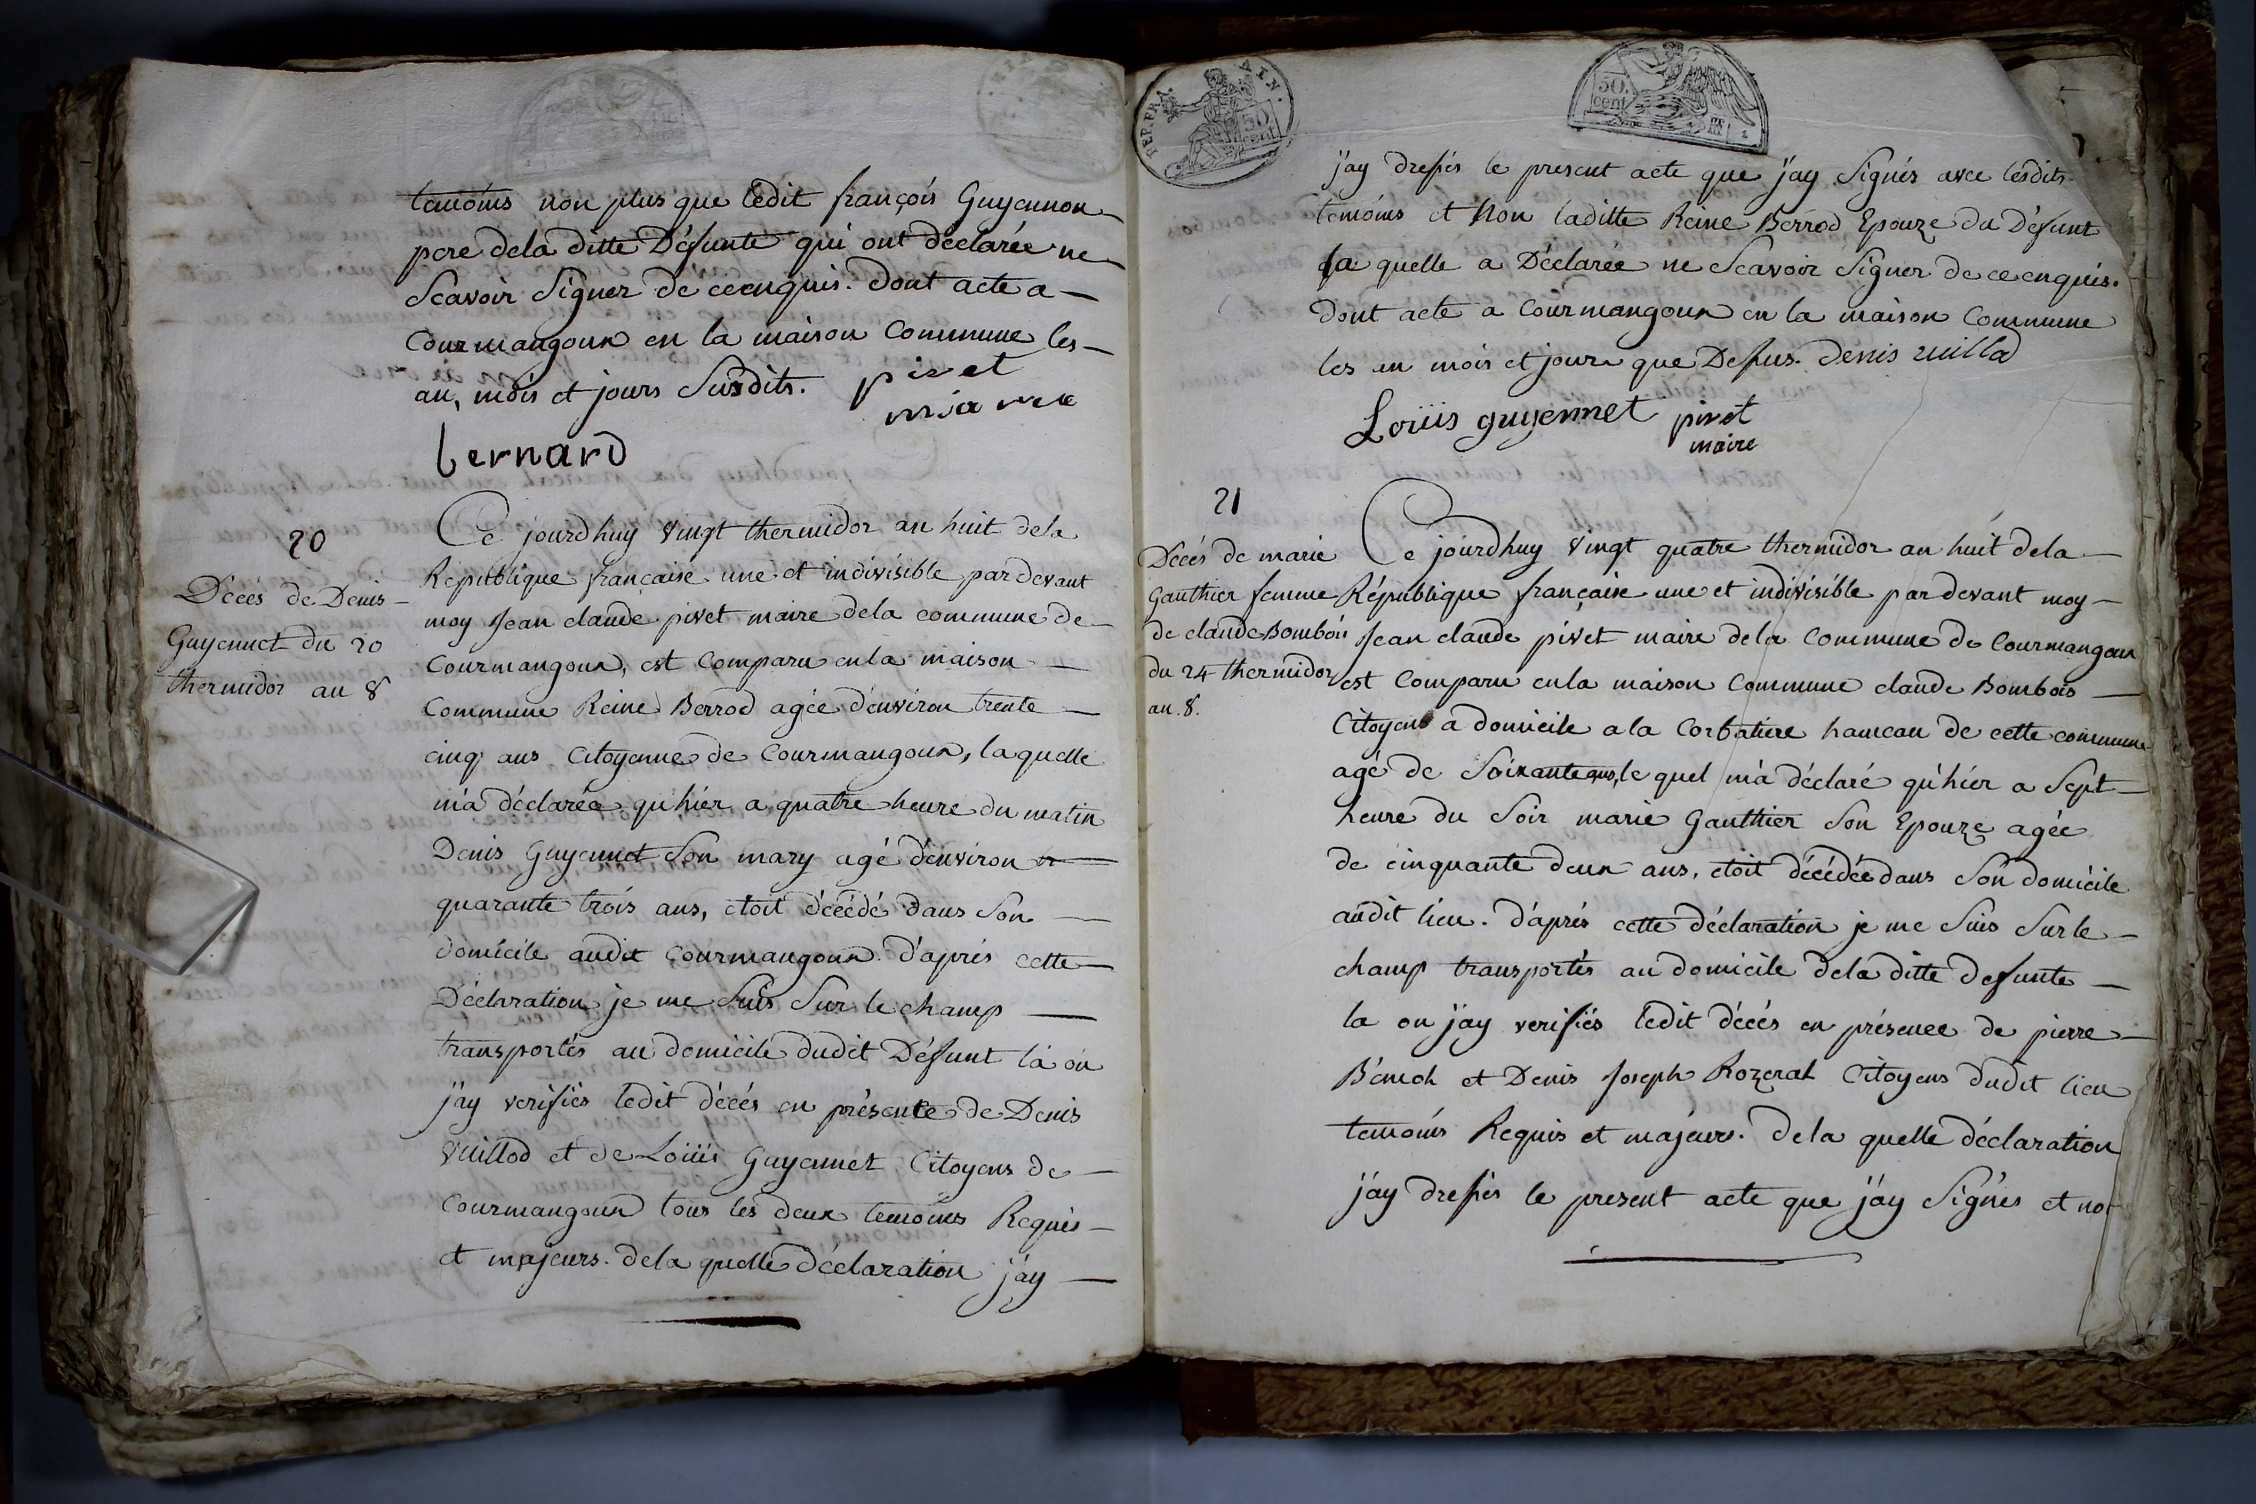 temoins non plus que ledit françois Guyennon
pere dela ditte Défunte qui ont déclarée ne
Scavoir Signer de ce enquis. dont acte a
Courmangoux en la maison Commune les
an, mois et jours Susdits. pivet
maire
bernard
20
Décés de Denis
Guyennet du 20
thermidor an 8
Ce jourdhuy vingt thermidor an huit dela
République française une et indivisible par devant
moy Jean claude pivet maire dela commune de
Courmangoux, est Comparu en la maison
Commune Reine Berrod agée d'environ trente
cinq ans Citoyenne de Courmangoux, la quelle
m'a déclarée qu'hier a quatre heure du matin
Denis Guyennet Son mary agé d'environ
quarante trois ans, étoit décédé dans Son
domicile audit Courmangoux. d'aprés cette
Déclaration je me Suis Sur le champ
transportés au domicile dudit Défunt la ou
j'ay verifiés ledit décés en présence de Denis
Vuillod et de Loüis Guyennet Citoyens de
Courmangoux tous les deux temoins Requis
et majeurs. dela quelle déclaration j'ay
REP. FRA. AIN.
50
cent
50.
cent
j'ay dressés le present acte que j'ay Signés avec lesdits
temoins et Non laditte Reine Berrod Epouze du Défunt
la quelle a Déclarée ne Scavoir Signer de ce enquis.
Dont acte a Courmangoux en la maison Commune
les an mois et jours que Dessus. Denis vuillod
Loüis guyennet pivet
maire
21
Décés de marie
Gauthier femme
de claude Bombois
du 24 thermidor
an. 8.
Ce jourdhuy vingt quatre thermidor an huit dela
République française une et indivisible par devant moy
Jean claude pivet maire dela Commune de Courmangoux
est Comparu en la maison Commune claude Bombois
Citoyens a domicile a la Corbatiere hameau de cette commune
agé de Soixante ans, le quel m'a déclaré qu'hier a Sept
heure du Soir marie Gauthier Son Epouze agée
de cinquante deux ans, étoit décédée dans Son domicile
audit lieu. d'aprés cette déclaration je me Suis Sur le
champ transportés au domicile dela ditte defunte
la ou j'ay verifiés ledit décés en présence de pierre
et Denis Joseph Citoyens dudit lieu
temoins Requis et majeurs. Dela quelle déclaration
j'ay dressés le present acte que j'ay Signés et no